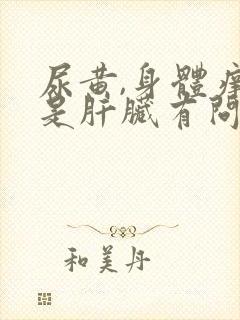 尿黄,身體痒
是肝臟有問
和美丹